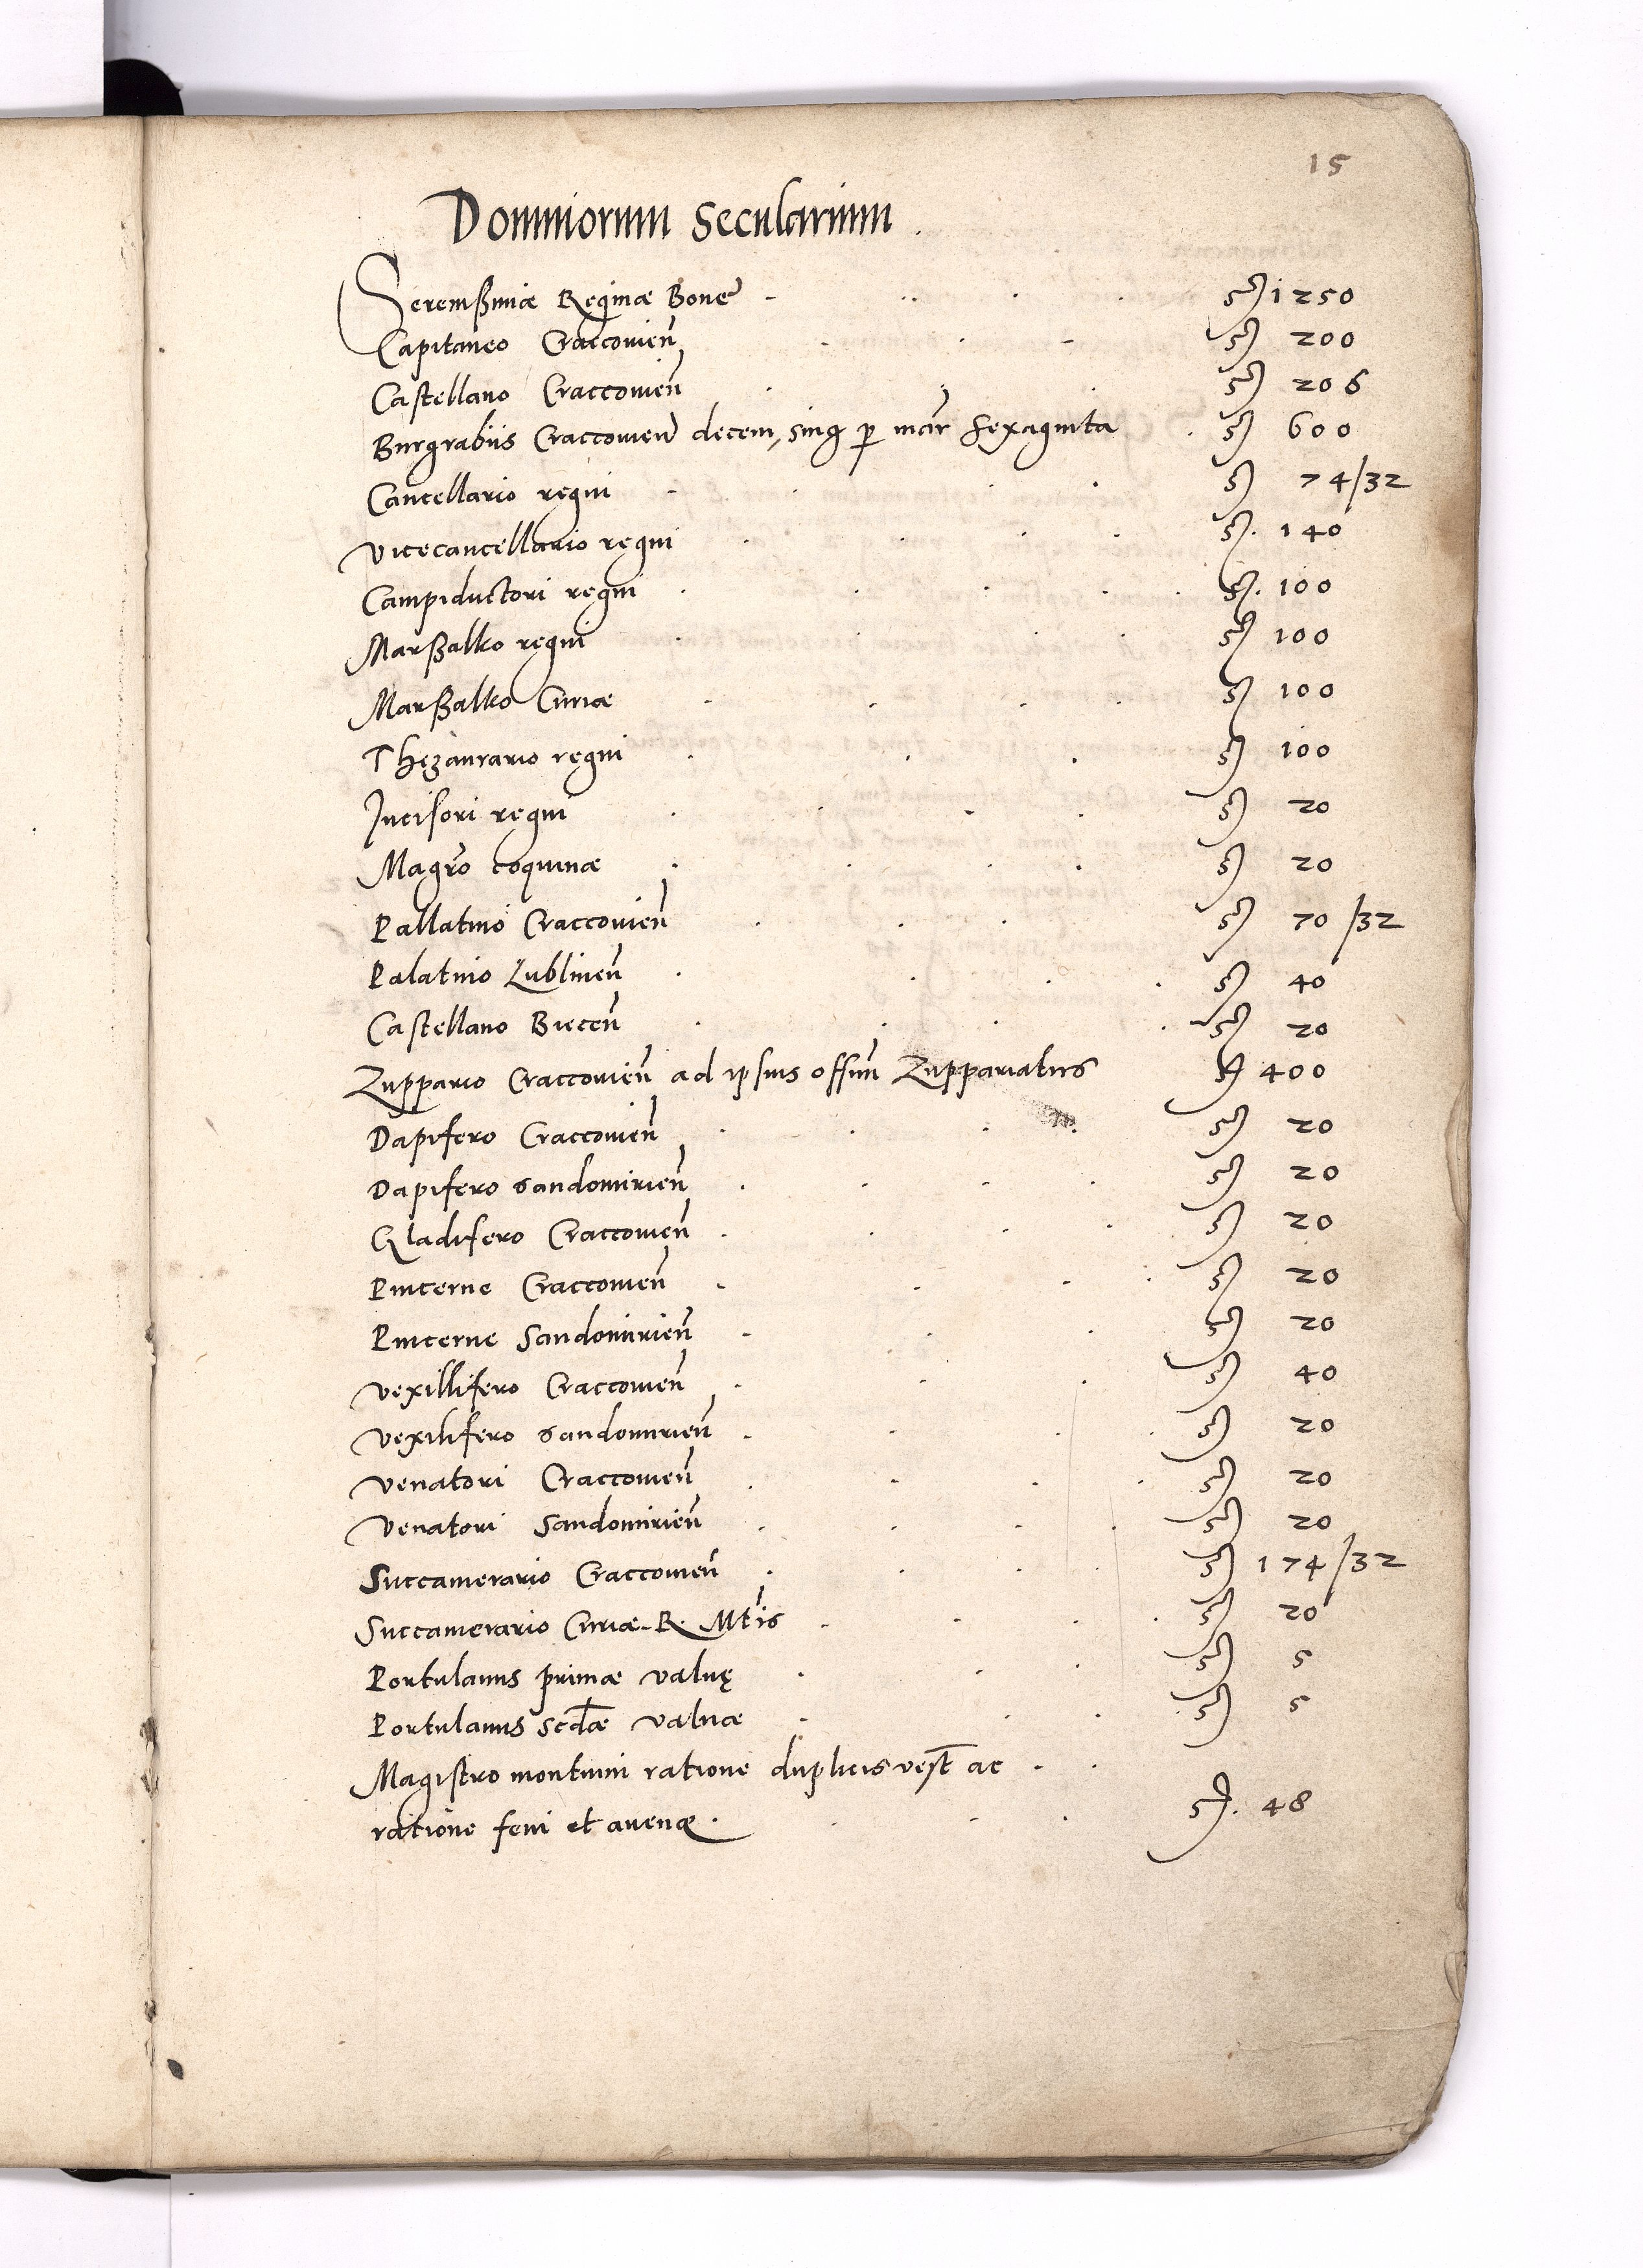 15
Dominorum Secularium.
Serenißimæ Reginæ Bone 1250
Capitaneo Craccovien̄ 200
Castellano Craccovien̄ 206
Burgrabiis Craccovien̄ decem, sing̃ p̱ mār sexaginta 600
Cancellario regni 74/32
Vicecancellario regni 140
Campiductori regni 100
Marßalko regni 100
Marßalko Curiæ 100
Thezaurario regni 100
Incisori regni 20
Magr̃o coquinæ 20
Pallatino Craccovien̄ 70/32
Palatino Lublinen̄ 40
Castellano Biecen̄ 20
Zuppario Craccovien̄ ad ipsius offium̄ Zuppariatus 400
Dapifero Craccovien̄ 20
Dapifero Sandomirien̄ 20
Gladifero Craccovien̄ 20
Pincerne Craccovien̄ 20
Pincerne Sandomirien̄ 20
Vexillifero Craccovien̄ 40
Vexilifero Sandomirien̄ 20
Venatori Craccovien̄ 20
Venatori Sandomirien̄ 20
Succamerario Craccovien̄ 174/32
Succamerario Curiæ R. Mt̃is 20
Portulanus primæ valvę 5
Portulanus scd̄æ valvæ 5
Magistro montium ratione duplicis vest̄ ac
ratione feni et avenæ. 48